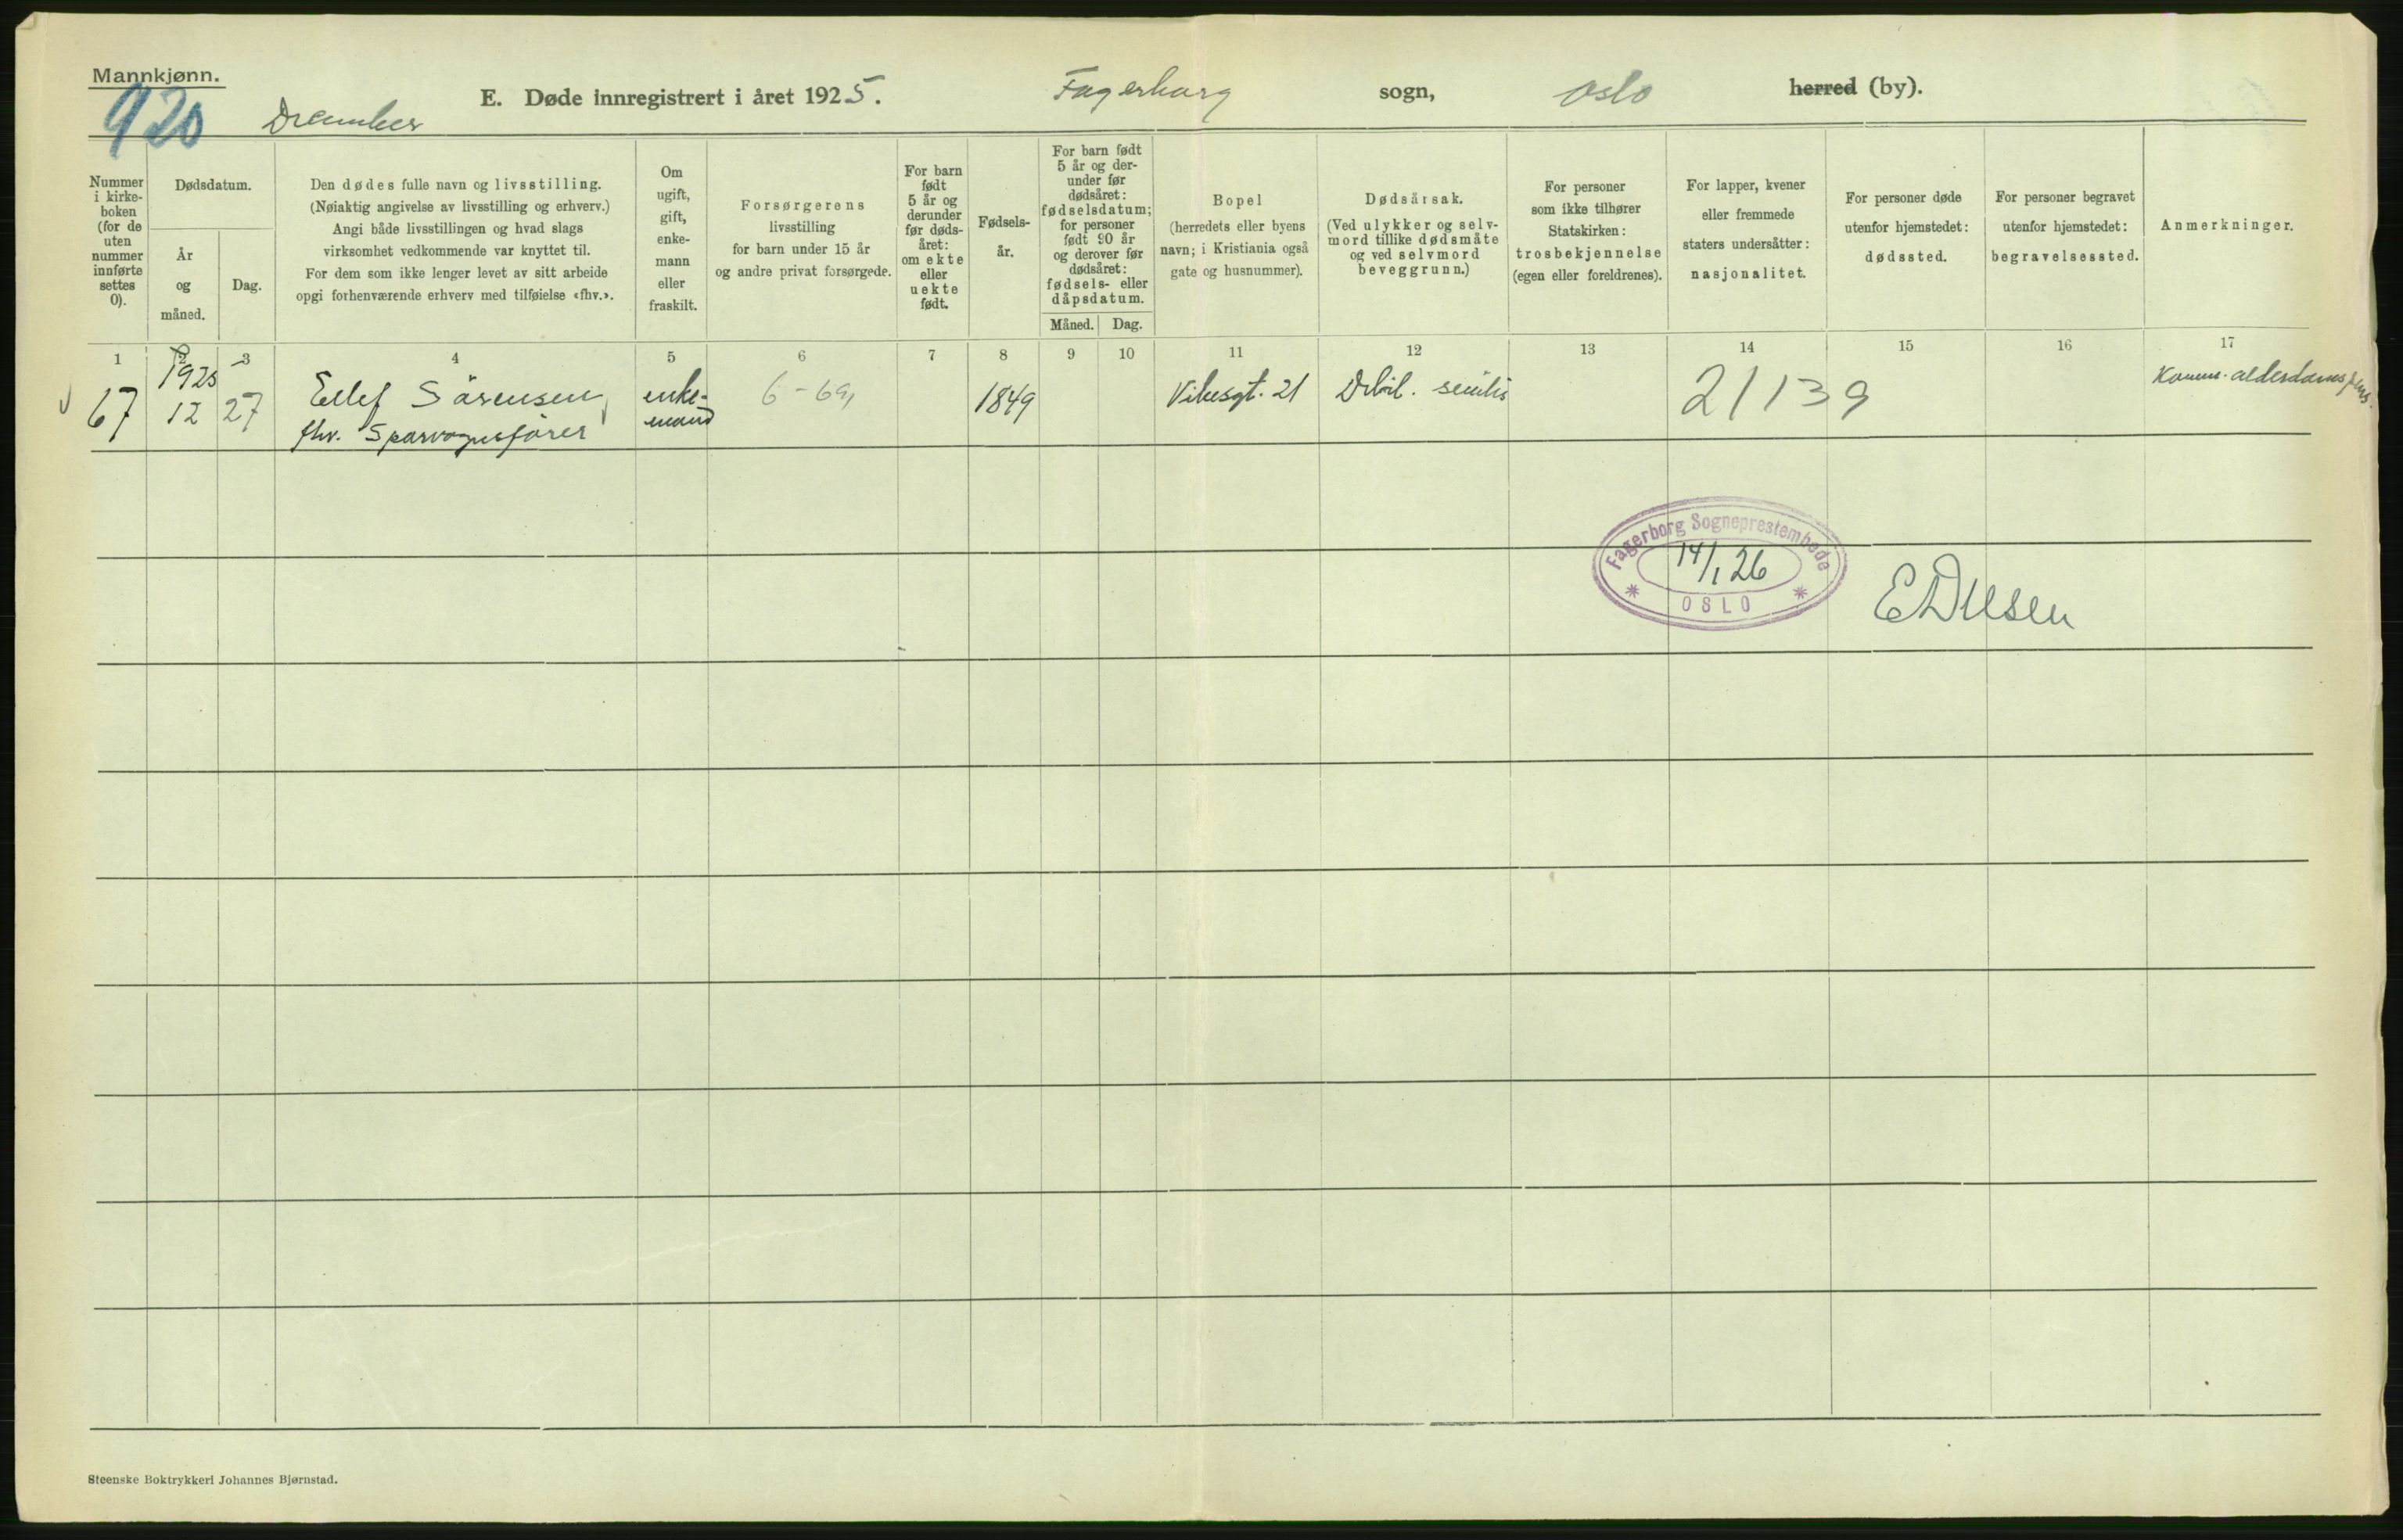 Mannkjønn.
920
December
E. Døde innregistrert i året 1925.
Fagerborg sogn,
Oslo herred (by).
Nummer i kirke-boken (for de uten nummer innførte settes 0).
Dødsdatum.
År og måned.
Dag.
Den dødes fulle navn og livsstilling.
(Nøiaktig angivelse av livsstilling og erhverv.)
Angi både livsstillingen og hvad slags
virksomhet vedkommende var knyttet til.
For dem som ikke lenger levet av sitt arbeide
opgi forhenværende erhverv med tilføielse «fhv.».
Om
ugift,
gift,
enke-
mann
eller
fraskilt.
Forsørgerens
livsstilling
for barn under 15 år
og andre privat forsørgede.
For barn
født
5 år og
derunder
før døds-
året:
om ekte
eller
uekte
født.
Fødsels-
år.
For barn født
5 år og der-
under før
dødsåret:
fødselsdatum;
for personer
født 90 år
og derover før
dødsåret:
fødsels- eller
dåpsdatum.
Måned. Dag.
Bopel
(herredets eller byens
navn; i Kristiania også
gate og husnummer).
Dødsårsak.
(Ved ulykker og selv-
mord tillike dødsmåte
og ved selvmord
beveggrunn.)
For personer
som ikke tilhører
Statskirken:
trosbekjennelse
(egen eller foreldrenes).
For lapper, kvener
eller fremmede
staters undersåtter:
nasjonalitet.
For personer døde
utenfor hjemstedet:
dødssted.
For personer begravet
utenfor hjemstedet:
begravelsessted.
Anmerkninger.
1 2 3 4 5 6 7 8 9 10 11 12 13 14 15 16 17
67
1925
12 27
Ellef Sörensen,
fhv. Sporvognsförer
enke-
mand
6-69,
1849
Vibesgt. 21
Debil. senilis
21139
Komm. alderdomspens.
Fagerborg Sogneprestembede
14/1 26
OSLO
Steenske Boktrykkeri Johannes Bjørnstad.